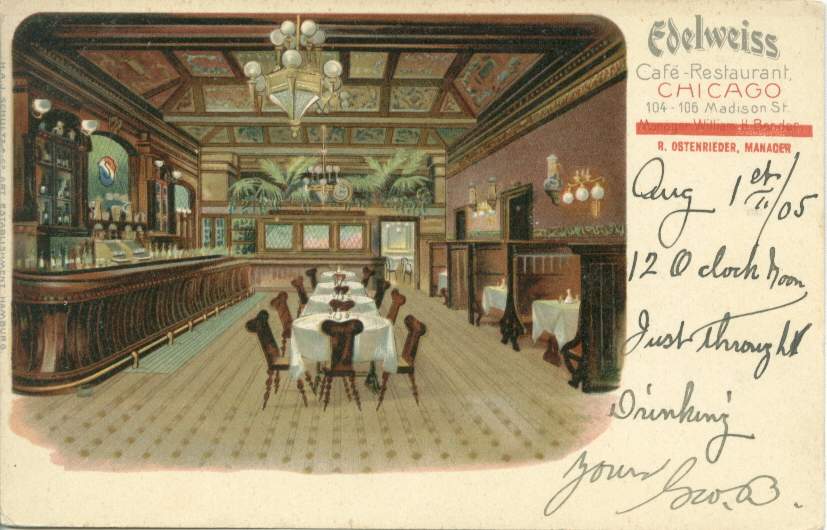 Edelweiss
Café-Restaurant,
CHICAGO
104-106 Madison St.
Manager William H. Bender
R. OSTENRIEDER, MANAGER
Aug 1st/05
12 O clock Noon
Just through
Drinking
Yours
Geo. B.